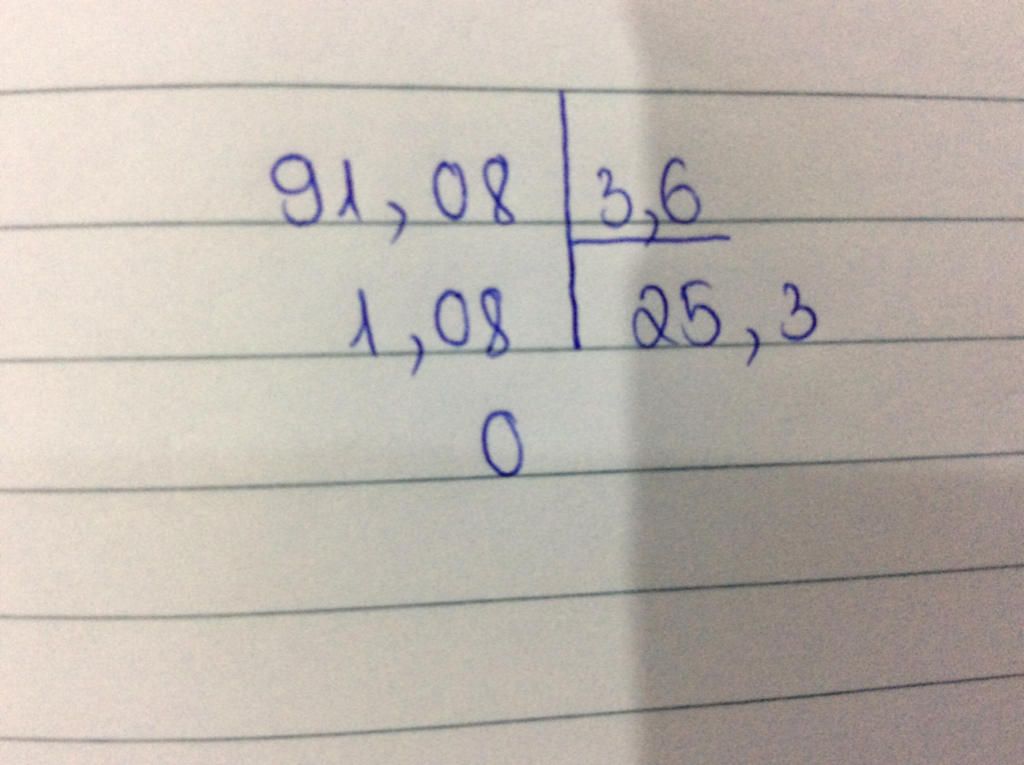 91,08 3,6
1,08 25,3
0